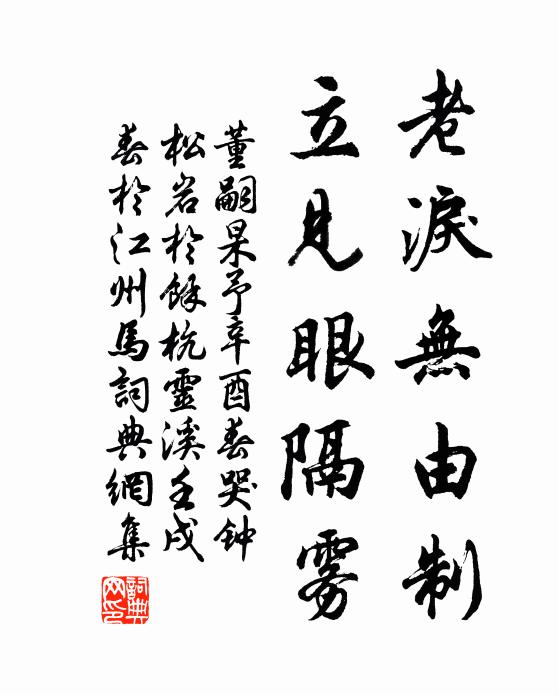 老淚無由制
立見眼隔霧
董嗣杲予辛酉春哭钟
松岩於餘杭靈溪壬戌
春於江州馬詞典網集
詞典
网印